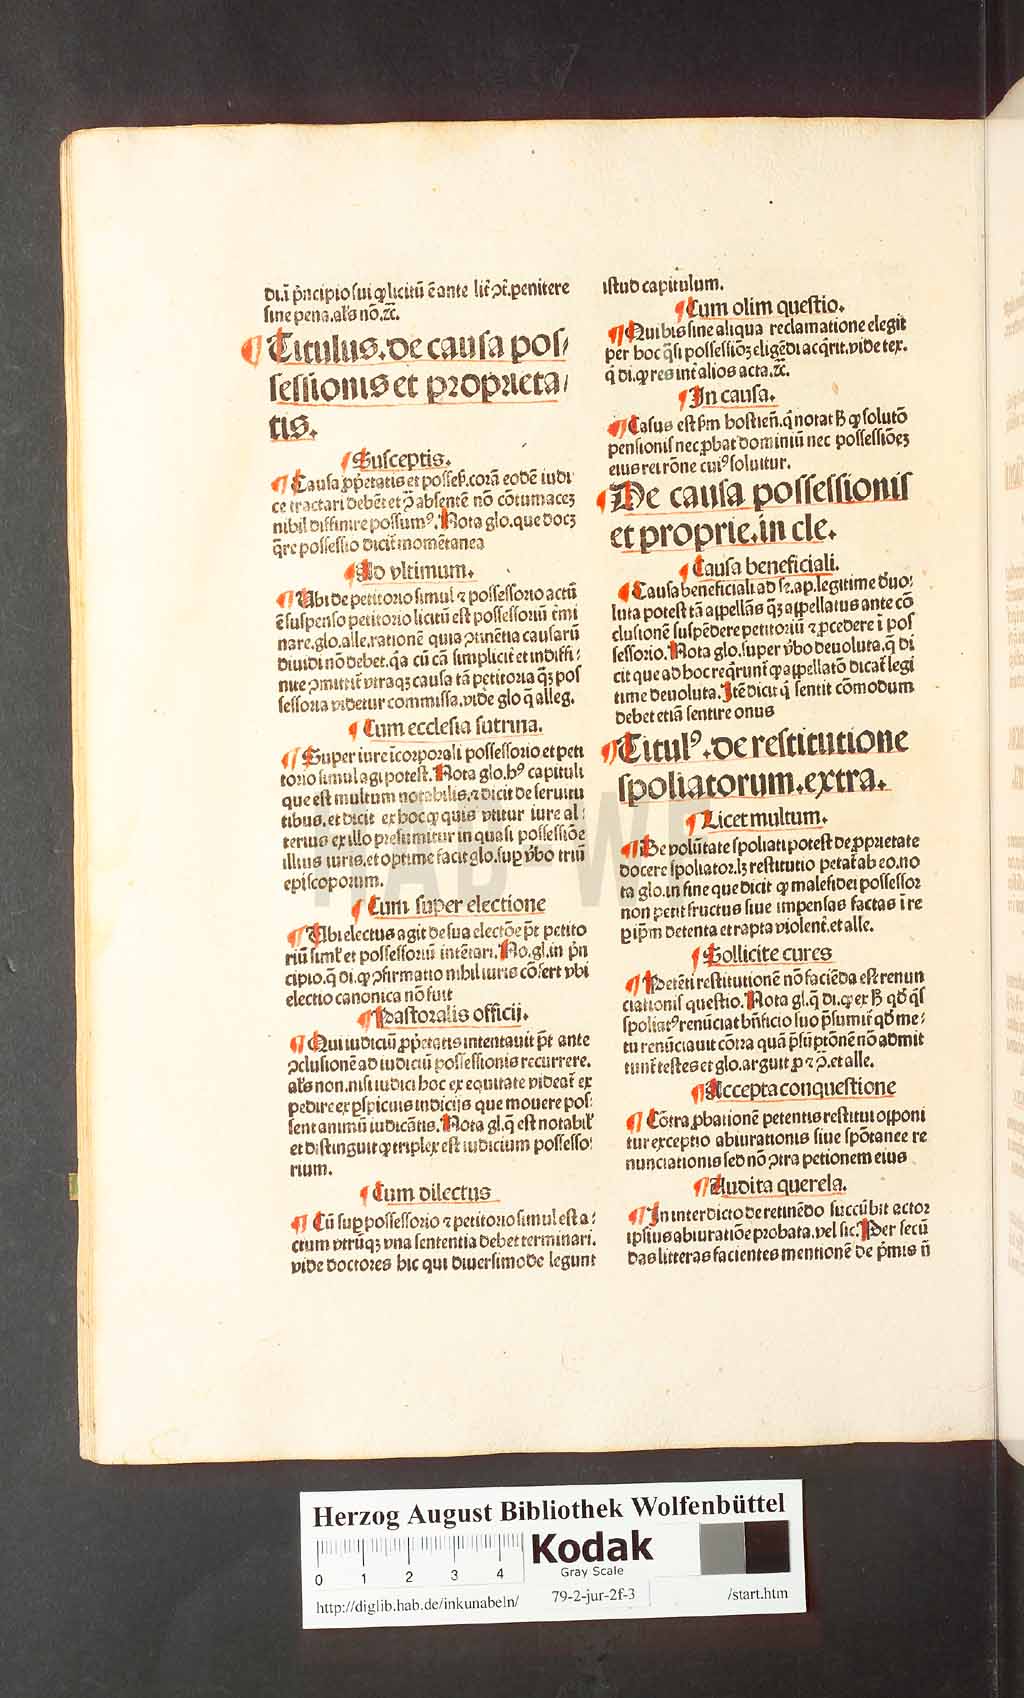 di.i p̄ncipio sui ꝙ licitū ē ante lit̄ ꝯt̄.penitere
sine pena.al's nō.⁊c̄.
¶ Titulus.de causa pos/
sessionis et proprieta/
tis.
¶ Susceptis.
¶ Causa ꝓp̄etatis et possess̄.corā eodē iudi
ce tractari debēt et ꝯ̄ absentē nō cōtumacez
nihil diffinire possumꝰ. Nota glo.que docz
q̄re possessio dicit̄ momētanea
¶ Ad vltimum.
¶ Ubi de petitorio simul ⁊ possessorio actū
ē suspenso petitorio licitū est possessoriū t̄mi
nare.glo.alle.rationē quia ꝯtinētia causarū
diuidi nō debet.q̄a cū cā simplicit̄ et indiffi:
nite ꝯmittit̄ vtraqꝫ causa tā petitoria q̄ꝫ pos
sessoria videtur commissa.vide glo q̄ alleg.
¶ Cum ecclesia sutrina.
¶ Super iure īcorporali possessorio et peti
torio simul agi potest. Nota glo.hꝰ capituli
que est multum notabilis.⁊ dicit de seruitu
tibus.et dicit ex hoc ꝙ quis vtitur iure al:
terius ex illo presumitur in quasi possessiōe
illius iuris.et optime facit glo.suꝑ v̄bo triū
episcoporum.
¶ Cum super electione
¶ Ubi electus agit de sua electōe p̄t petito
riū simł et possessoriū intētari. No.gl.in p̄n
cipio.q̄ di.ꝙ ꝯfirmatio nihil iuris cōfert vbi
electio canonica nō fuit
¶ Pastoralis officij.
¶ Qui iudiciū ꝓp̄etatis intentauit p̄t ante
ꝯclusionē ad iudiciū possessionis recurrere.
al's non.nisi iudici hoc ex equitate videat̄ ex
pedire ex ꝑspicuis indicijs que mouere pos:
sent animū iudicātis. Nota gl.q̄ est notabił
et distinguit ꝙ triplex est iudicium possesso:
rium.
¶ Cum dilectus
¶ Cū suꝑ possessorio ⁊ petitorio simul est a:
ctum vtrūqꝫ vna sententia debet terminari.
vide doctores hic qui diuersimode legunt
istud capitulum.
¶ Cum olim questio.
¶ Qui bis sine aliqua reclamatione elegit
per hoc q̄si possessiōꝫ eligēdi acq̄rit.vide tex.
q̄ di.ꝙ res int̄ alios acta.⁊c̄.
¶ In causa.
¶ Casus est s̄m hostien̄.q̄ notat ꝓ ꝙ solutō
pensionis nec ꝓbat dominiū nec possessiōeꝫ
eius rei rōne cuiꝰ soluitur.
¶ De causa possessionis
et proprie.in cle.
¶ Causa beneficiali.
¶ Causa beneficiali ad se.ap.legitime d̄uo:
luta potest tā appellās q̄ꝫ appellatus ante cō
clusionē suspēdere petitoriū ⁊ ꝓcedere ī pos
sessorio. Nota glo.super v̄bo deuoluta.q̄ di
cit que ad hoc req̄runt̄ ꝙ appellatō dicat̄ legi
time deuoluta. Itē dicit q̄ sentit cōmodum
debet etiā sentire onus
¶ Titulꝰ.de restitutione
spoliatorum.extra.
¶ Licet multum.
¶ De volūtate spoliati potest de ꝓprietate
docere spoliator.lꝫ restitutio petat̄ ab eo.no
ta glo.in fine que dicit ꝙ malefidei possessor
non petit fructus siue impensas factas ī re
ꝑ ip̄m detenta et rapta violent̄.et alle.
¶ Sollicite cures
¶ Petēti restitutionē nō faciēda est renun
ciationis questio. Nota gl.q̄ di.ꝙ ex ꝓ qd̄ q̄s
spoliatꝰ renūciat bn̄ficio suo p̄sumit̄ qd̄ me:
tu renūciauit cōtra quā p̄sūptōnē nō admit
tunt̄ testes et glo.arguit ꝓ ⁊ ꝯ̄.et alle.
¶ Accepta conquestione
¶ Cōtra ꝓbationē petentis restitui opponi
tur exceptio abiurationis siue spōtanee re
nunciationis sed nō ꝯtra petionem eius
¶ Audita querela.
¶ In interdicto de retinēdo succūbit actor
ipsius abiuratiōe probata.vel sic. Per secū
das litteras facientes mentionē de p̄mis n̄
HAB-WF
Herzog August Bibliothek Wolfenbüttel
0 1 2 3 4
Kodak
Gray Scale
http://diglib.hab.de/inkunabeln/ 79-2-jur-2f-3 /start.htm